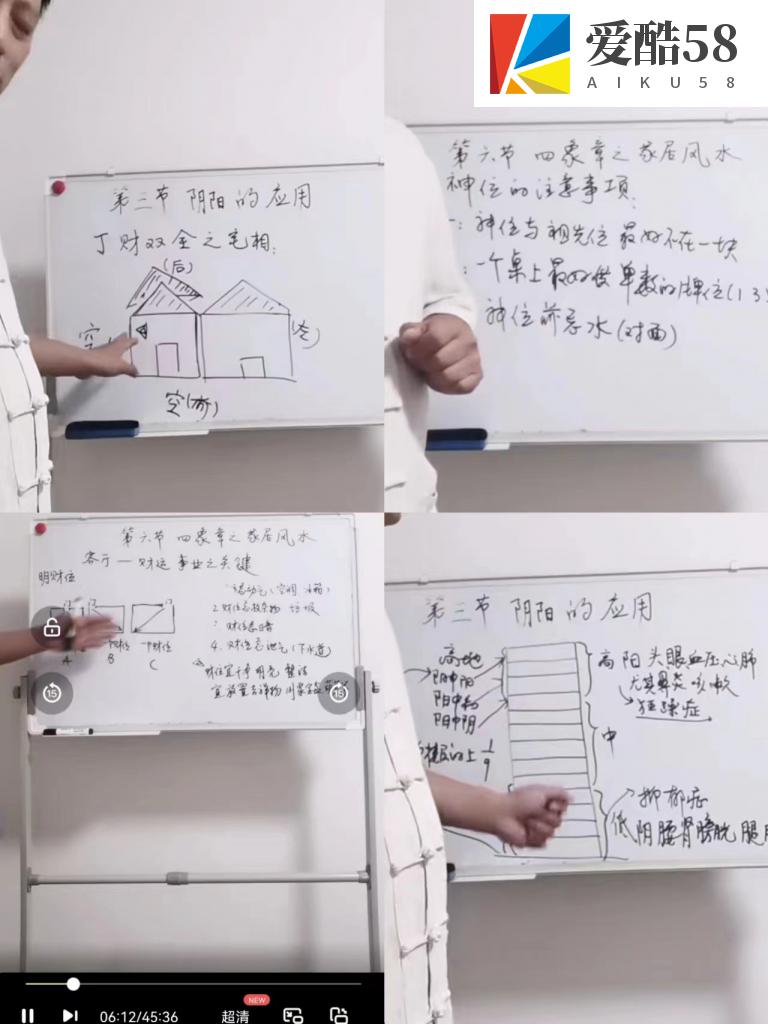 爱酷58
AIKU58
第三节 阴阳的应用
丁财双全之宅相:
(后)
空
空(前)
第六节 四象章之家居风水
神位的注意事项:
神位与祖先位最好不在一块
一个桌上最好供单数的牌位(1 3
神位前忌水(对面)
第六节 四象章之家居风水
客厅一财运事业之关键
明财位
A
B
C
2.财位忌放杂物 垃圾
4.财位忌泄气(下水道)
财位宜干净明亮 整洁
15
15
NEW
06:12/45:36
超清
第三节 阴阳的应用
高地
阴中阳
阳中和
阳中阴
的上1/9
高 阳 头眼血压心肺
尤其鼻炎咳嗽
狂躁症
中
抑郁症
低 阴腰肾膀胱腿